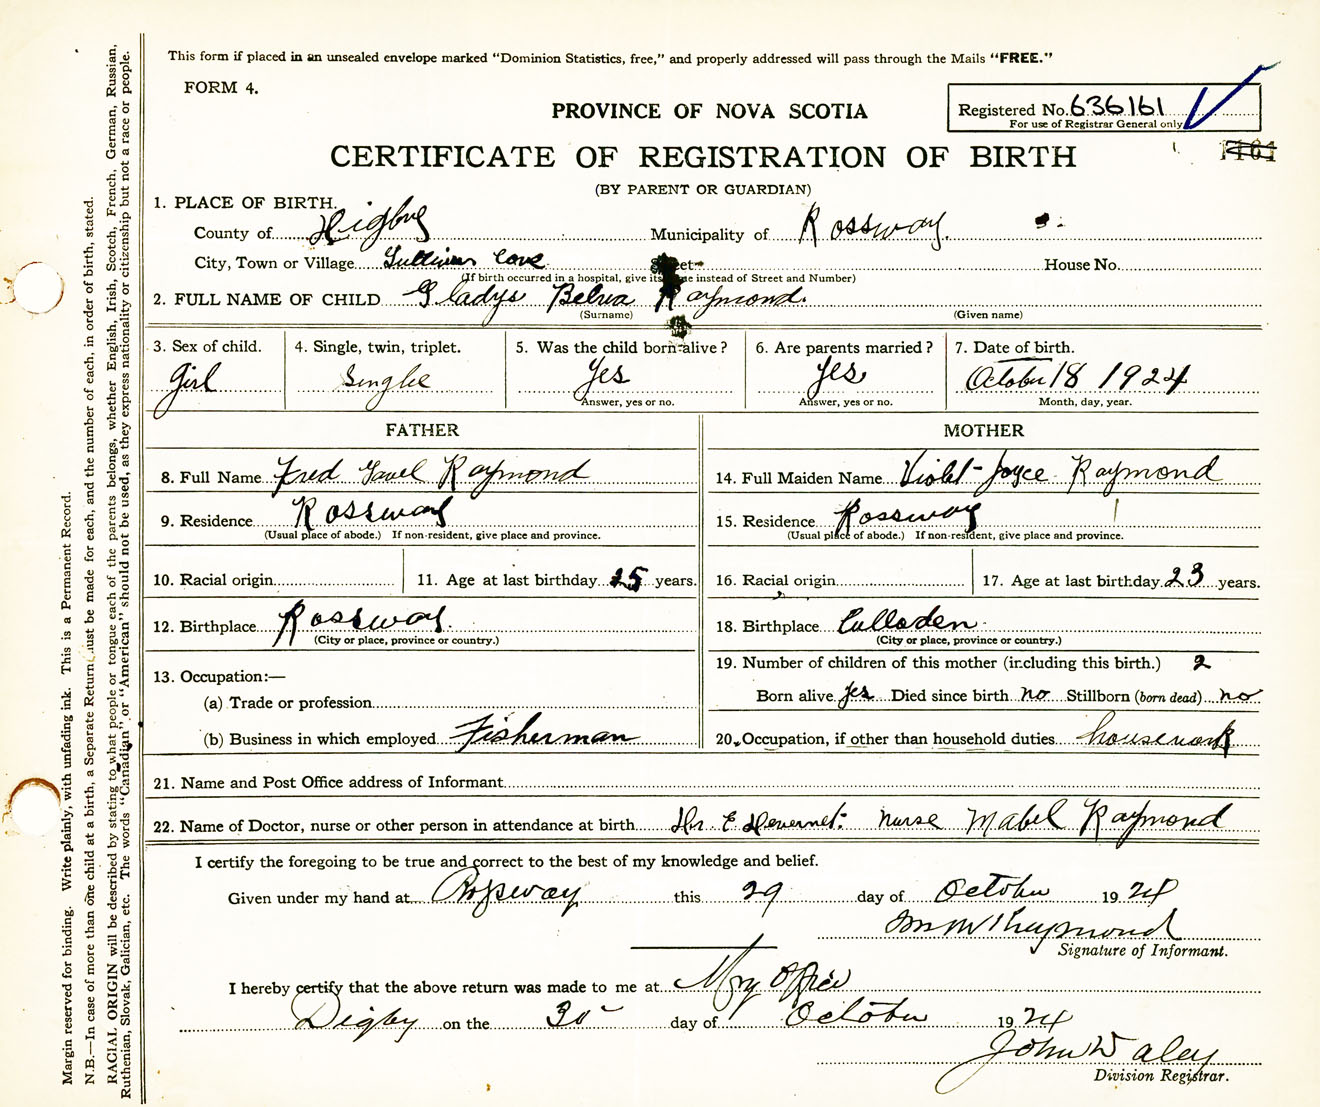 This form if placed in an unsealed envelope marked "Dominion Statistics, free," and properly addressed will pass through the Mails "FREE."
FORM 4.
PROVINCE OF NOVA SCOTIA
Registered No. 636161
For use of Registrar General only
CERTIFICATE OF REGISTRATION OF BIRTH
(BY PARENT OR GUARDIAN)
1. PLACE OF BIRTH.
County of Digby Municipality of Rossway.
City, Town or Village Sullivan Cove Street House No.
(If birth occurred in a hospital, give its name instead of Street and Number)
2. FULL NAME OF CHILD Gladys Belva Raymond.
(Surname) (Given name)
3. Sex of child. 4. Single, twin, triplet. 5. Was the child born alive? 6. Are parents married? 7. Date of birth.
Girl Single Yes Yes October 18 1924
Answer, yes or no. Answer, yes or no. Month, day, year.
FATHER MOTHER
8. Full Name Fred Raymond 14. Full Maiden Name Violet Joyce Raymond
9. Residence Rossway 15. Residence Rossway
(Usual place of abode.) If non-resident, give place and province. (Usual place of abode.) If non-resident, give place and province.
10. Racial origin 11. Age at last birthday 25 years. 16. Racial origin 17. Age at last birthday 23 years.
12. Birthplace Rossway. 18. Birthplace Culloden
(City or place, province or country.) (City or place, province or country.)
13. Occupation:— 19. Number of children of this mother (including this birth.) 2
(a) Trade or profession Born alive yes Died since birth no Stillborn (born dead) no
(b) Business in which employed Fisherman 20. Occupation, if other than household duties housework
21. Name and Post Office address of Informant
22. Name of Doctor, nurse or other person in attendance at birth Dr. E Nurse Mabel Raymond
I certify the foregoing to be true and correct to the best of my knowledge and belief.
Given under my hand at Rossway this 29 day of October 1924
Raymond
Signature of Informant.
I hereby certify that the above return was made to me at My Office
Digby on the 30 day of October 1924
John Daley
Division Registrar.
Margin reserved for binding. Write plainly, with unfading ink. This is a Permanent Record.
N.B.—In case of more than one child at a birth, a Separate Return must be made for each, and the number of each, in order of birth, stated.
RACIAL ORIGIN will be described by stating to what people or tongue each of the parents belongs, whether English, Irish, Scotch, French, German, Russian,
Ruthenian, Slovak, Galician, etc. The words "Canadian" or "American" should not be used, as they express nationality or citizenship but not a race or people.